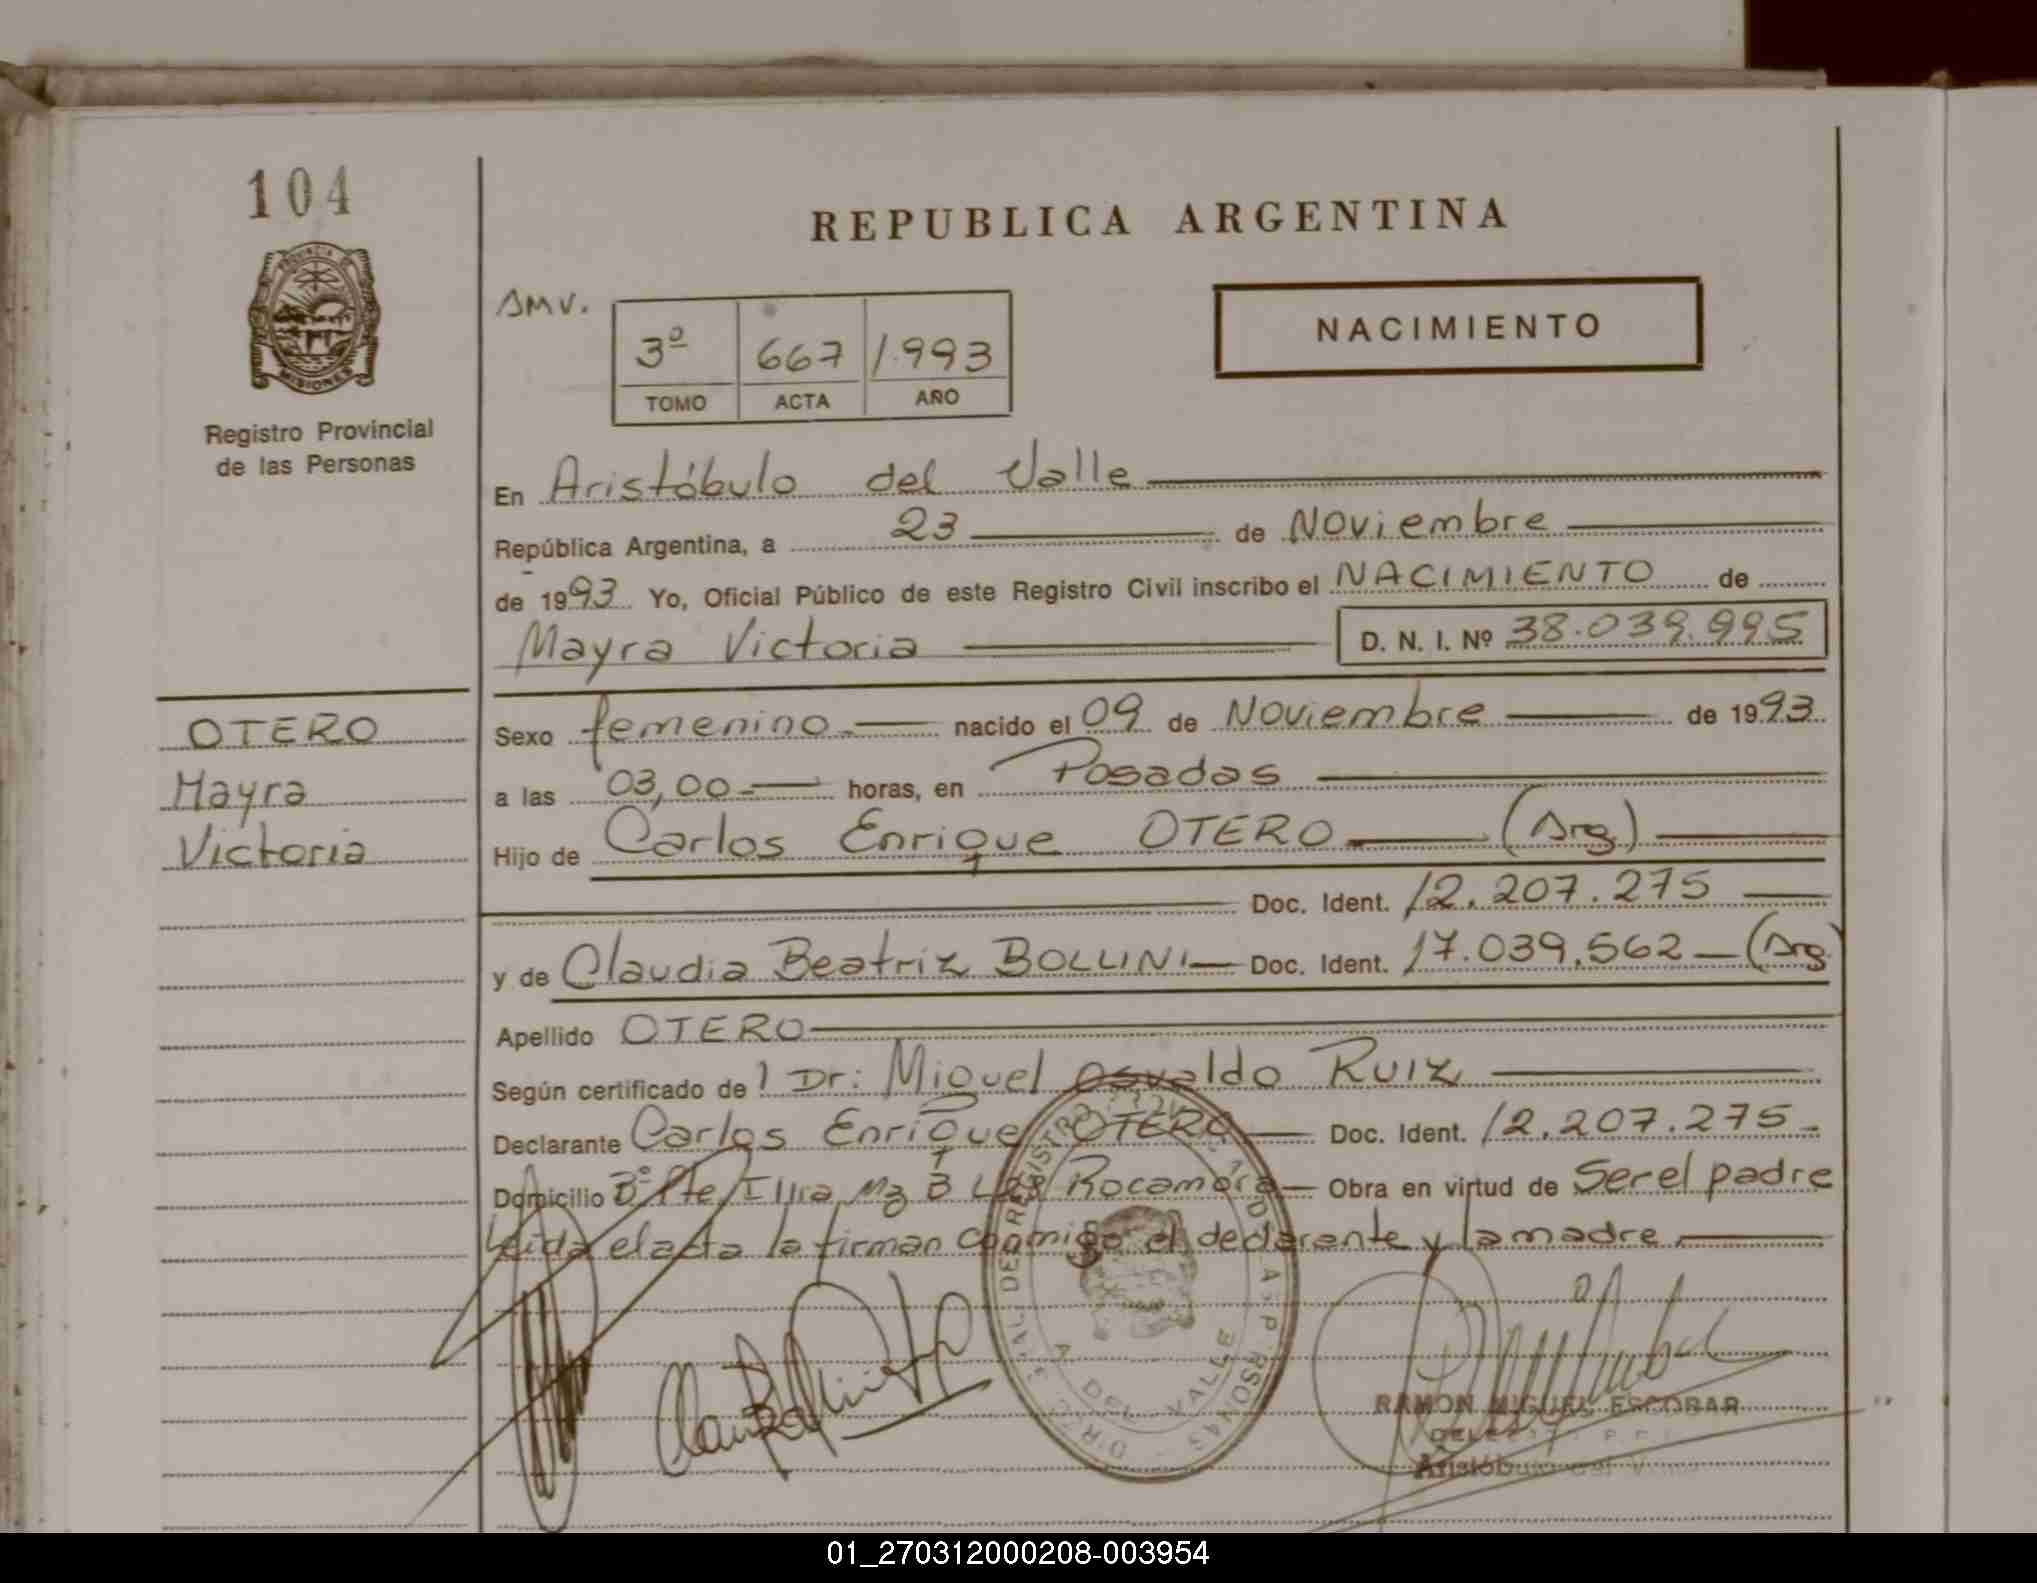 104
REPUBLICA ARGENTINA
PROVINCIA DE
MISIONES
Registro Provincial
de las Personas
AMV.
3º 667 1.993
TOMO ACTA AÑO
NACIMIENTO
En Aristóbulo del Valle
República Argentina, a 23 de Noviembre
de 1993 Yo, Oficial Público de este Registro Civil inscribo el NACIMIENTO de
Mayra Victoria D. N. I. Nº 38.039.995
OTERO
Mayra
Victoria
Sexo femenino nacido el 09 de Noviembre de 1993
a las 03,00 horas, en Posadas
Hijo de Carlos Enrique OTERO (Arg)
Doc. Ident. 12.207.275
y de Claudia Beatriz BOLLINI Doc. Ident. 17.039.562 (Arg)
Apellido OTERO
Según certificado de Dr: Miguel Osvaldo Ruiz
Declarante Carlos Enrique OTERO Doc. Ident. 12.207.275
Domicilio Bº Pte Rocamora Obra en virtud de Ser el padre
Leida el acta la firman conmigo el declarante y la madre
DEL VALLE
RAMON MIGUEL ESCOBAR
Aristóbulo del Valle
01_270312000208-003954